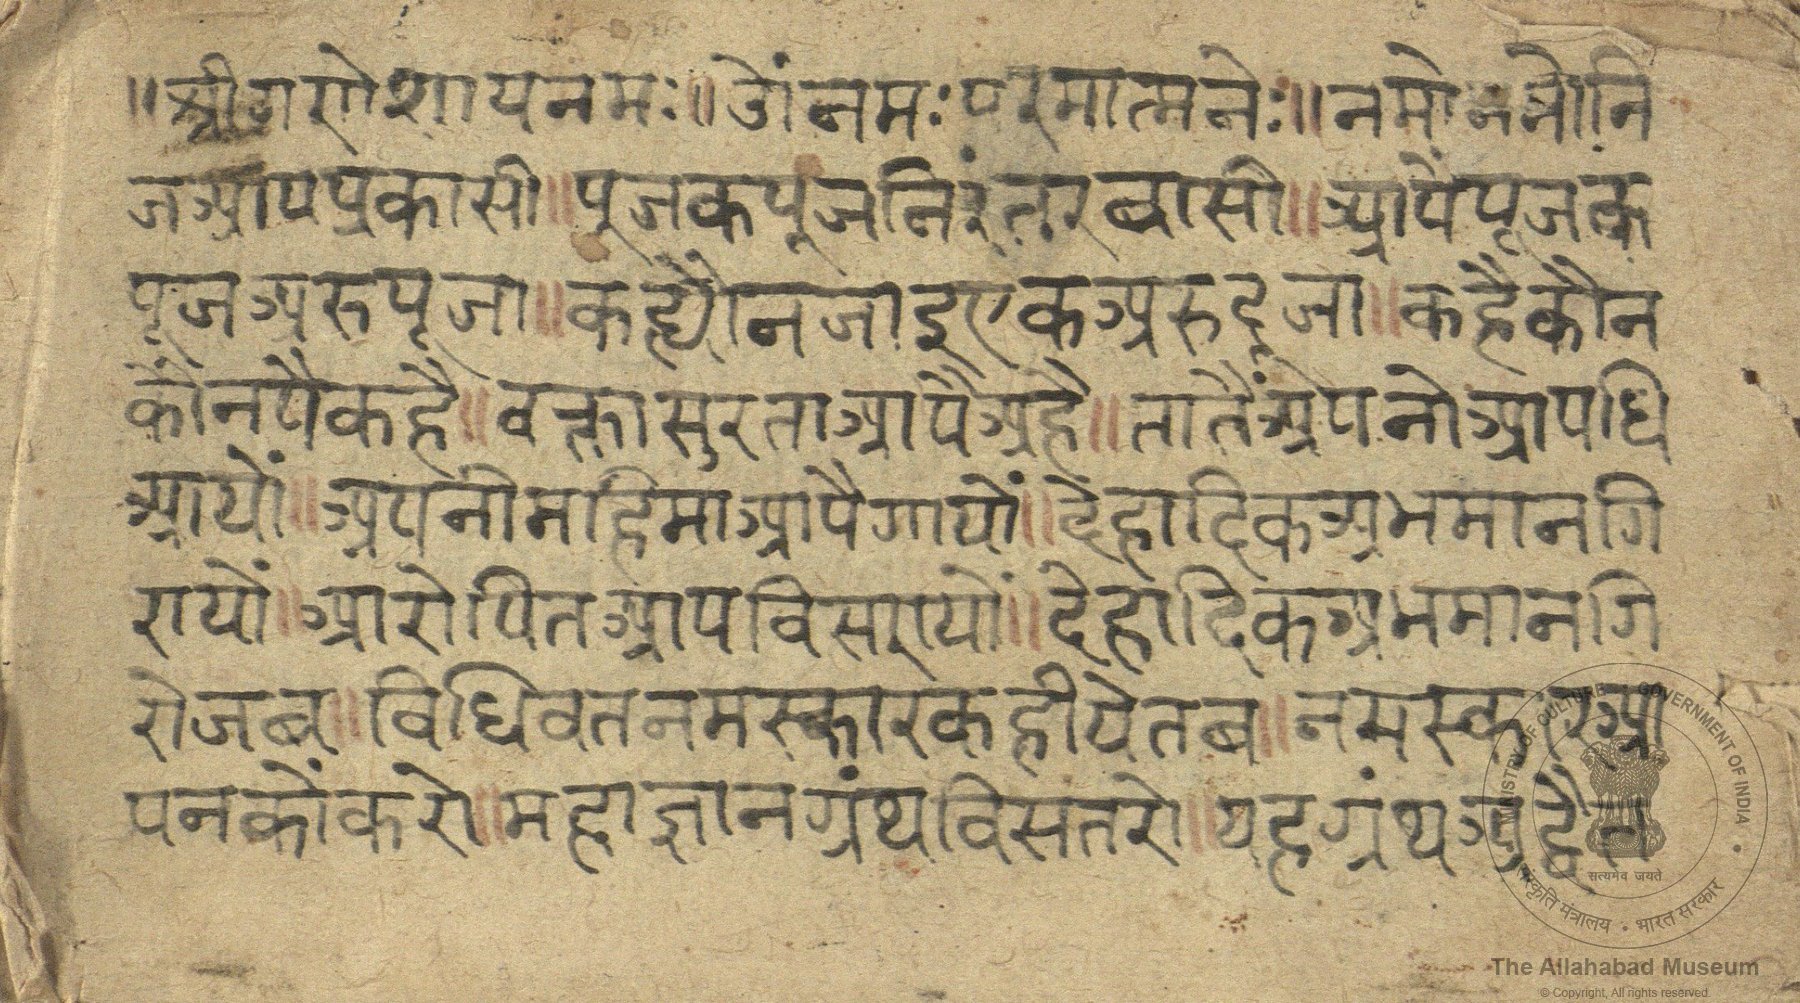 ॥श्रीगणेशायनमः॥ॐनमःपरमात्मनेः॥नमोनमोनि
जआपप्रकासी॥पूजकपूजनिरंतरबासी॥आपैपूजक
पूजअरुपूजा॥कह्यौनजाइएकअरुदूजा॥कहैकौन
कौनपैकहै॥वक्तासुरताआपैअहै॥तातैंअपनोआपधि
आयों॥अपनीमहिमाआपैगायों॥देहादिकअभमानगि
रायों॥आरोपितआपविसरायों॥देहादिकअभमानगि
रोजब॥विधिवतनमस्कारकहीयेतब॥नमस्कारआ
पनकोंकरो॥महाज्ञानग्रंथविसतरो॥यहग्रंथअद्वैत
MINISTRY OF CULTURE • GOVERNMENT OF INDIA
सत्यमेव जयते
संस्कृति मंत्रालय • भारत सरकार
The Allahabad Museum
© Copyright, All rights reserved